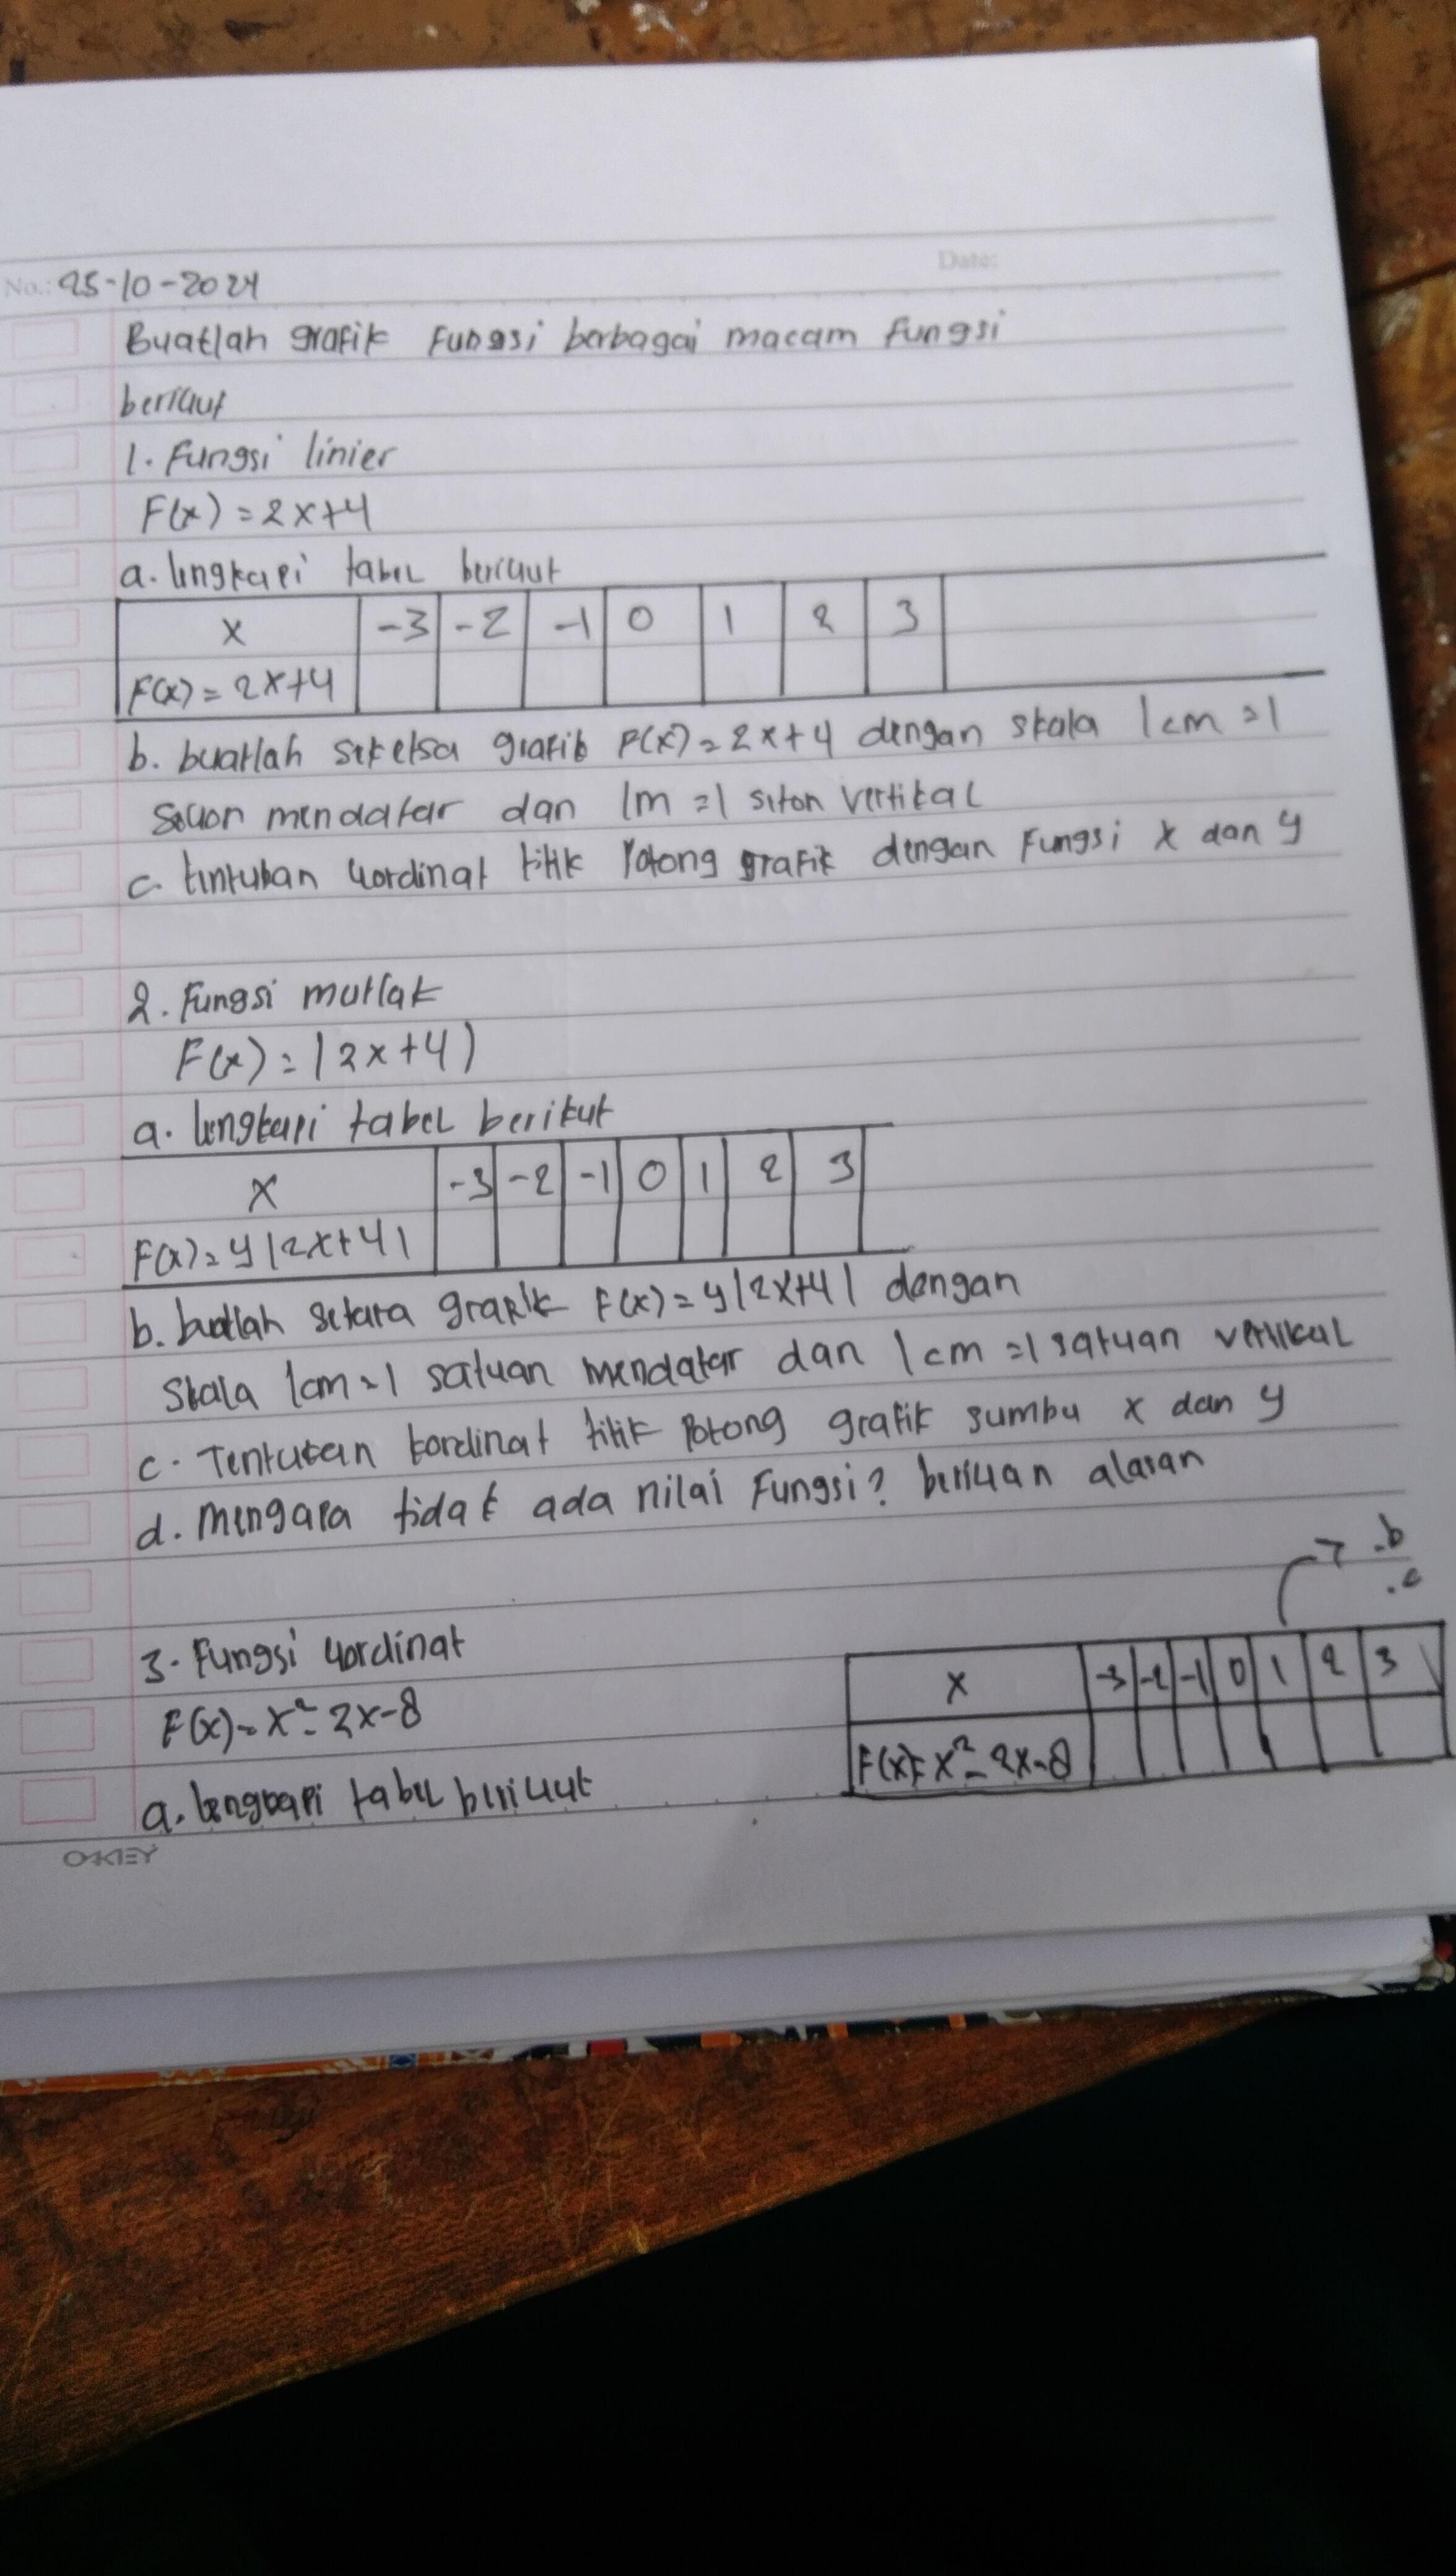 No.: 25-10-2024 Date:
Buatlah grafik fungsi berbagai macam fungsi
berikut
1. Fungsi linier
F(x) = 2x+4
a. lengkapi tabel berikut
x -3 -2 -1 0 1 2 3
F(x) = 2x+4
b. buatlah grafik F(x) = 2x+4 dengan skala 1cm = 1
mendatar dan 1m = 1 vertikal
c. kordinat titik Potong grafik dengan Fungsi x dan y
2. Fungsi mutlak
F(x) = |2x+4)
a. lengkapi tabel berikut
x -3 -2 -1 0 1 2 3
F(x) = y |2x+4|
b. buatlah grafik F(x) = y |2x+4| dengan
Skala 1cm = 1 satuan mendatar dan 1cm = 1 satuan vertikal
c. Tentukan kordinat titik Potong grafik sumbu x dan y
d. mengapa tidak ada nilai Fungsi? berikan alasan
→ .b
.c
3. Fungsi kordinat
F(x) = x² - 2x-8
x -3 -2 -1 0 1 2 3
F(x) = x² - 2x-8
a. lengkapi tabel berikut
OKEY